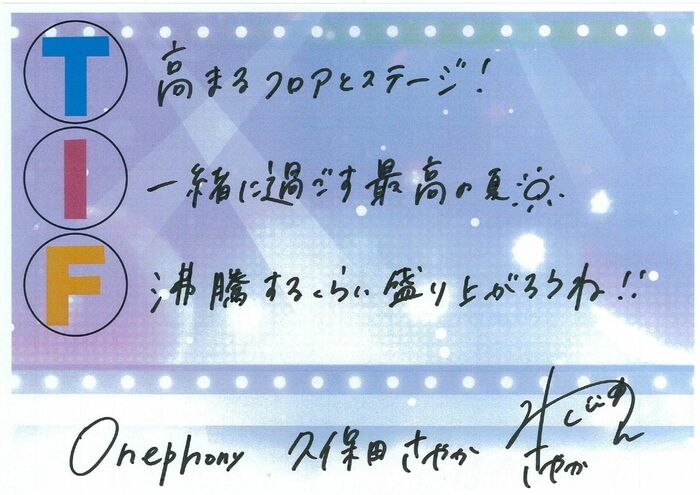 T 高まるフロアとステージ!
I 一緒に過ごす最高の夏
F 沸騰するくらい盛り上がろうね!!
Onephony 久保田さやか
さやか